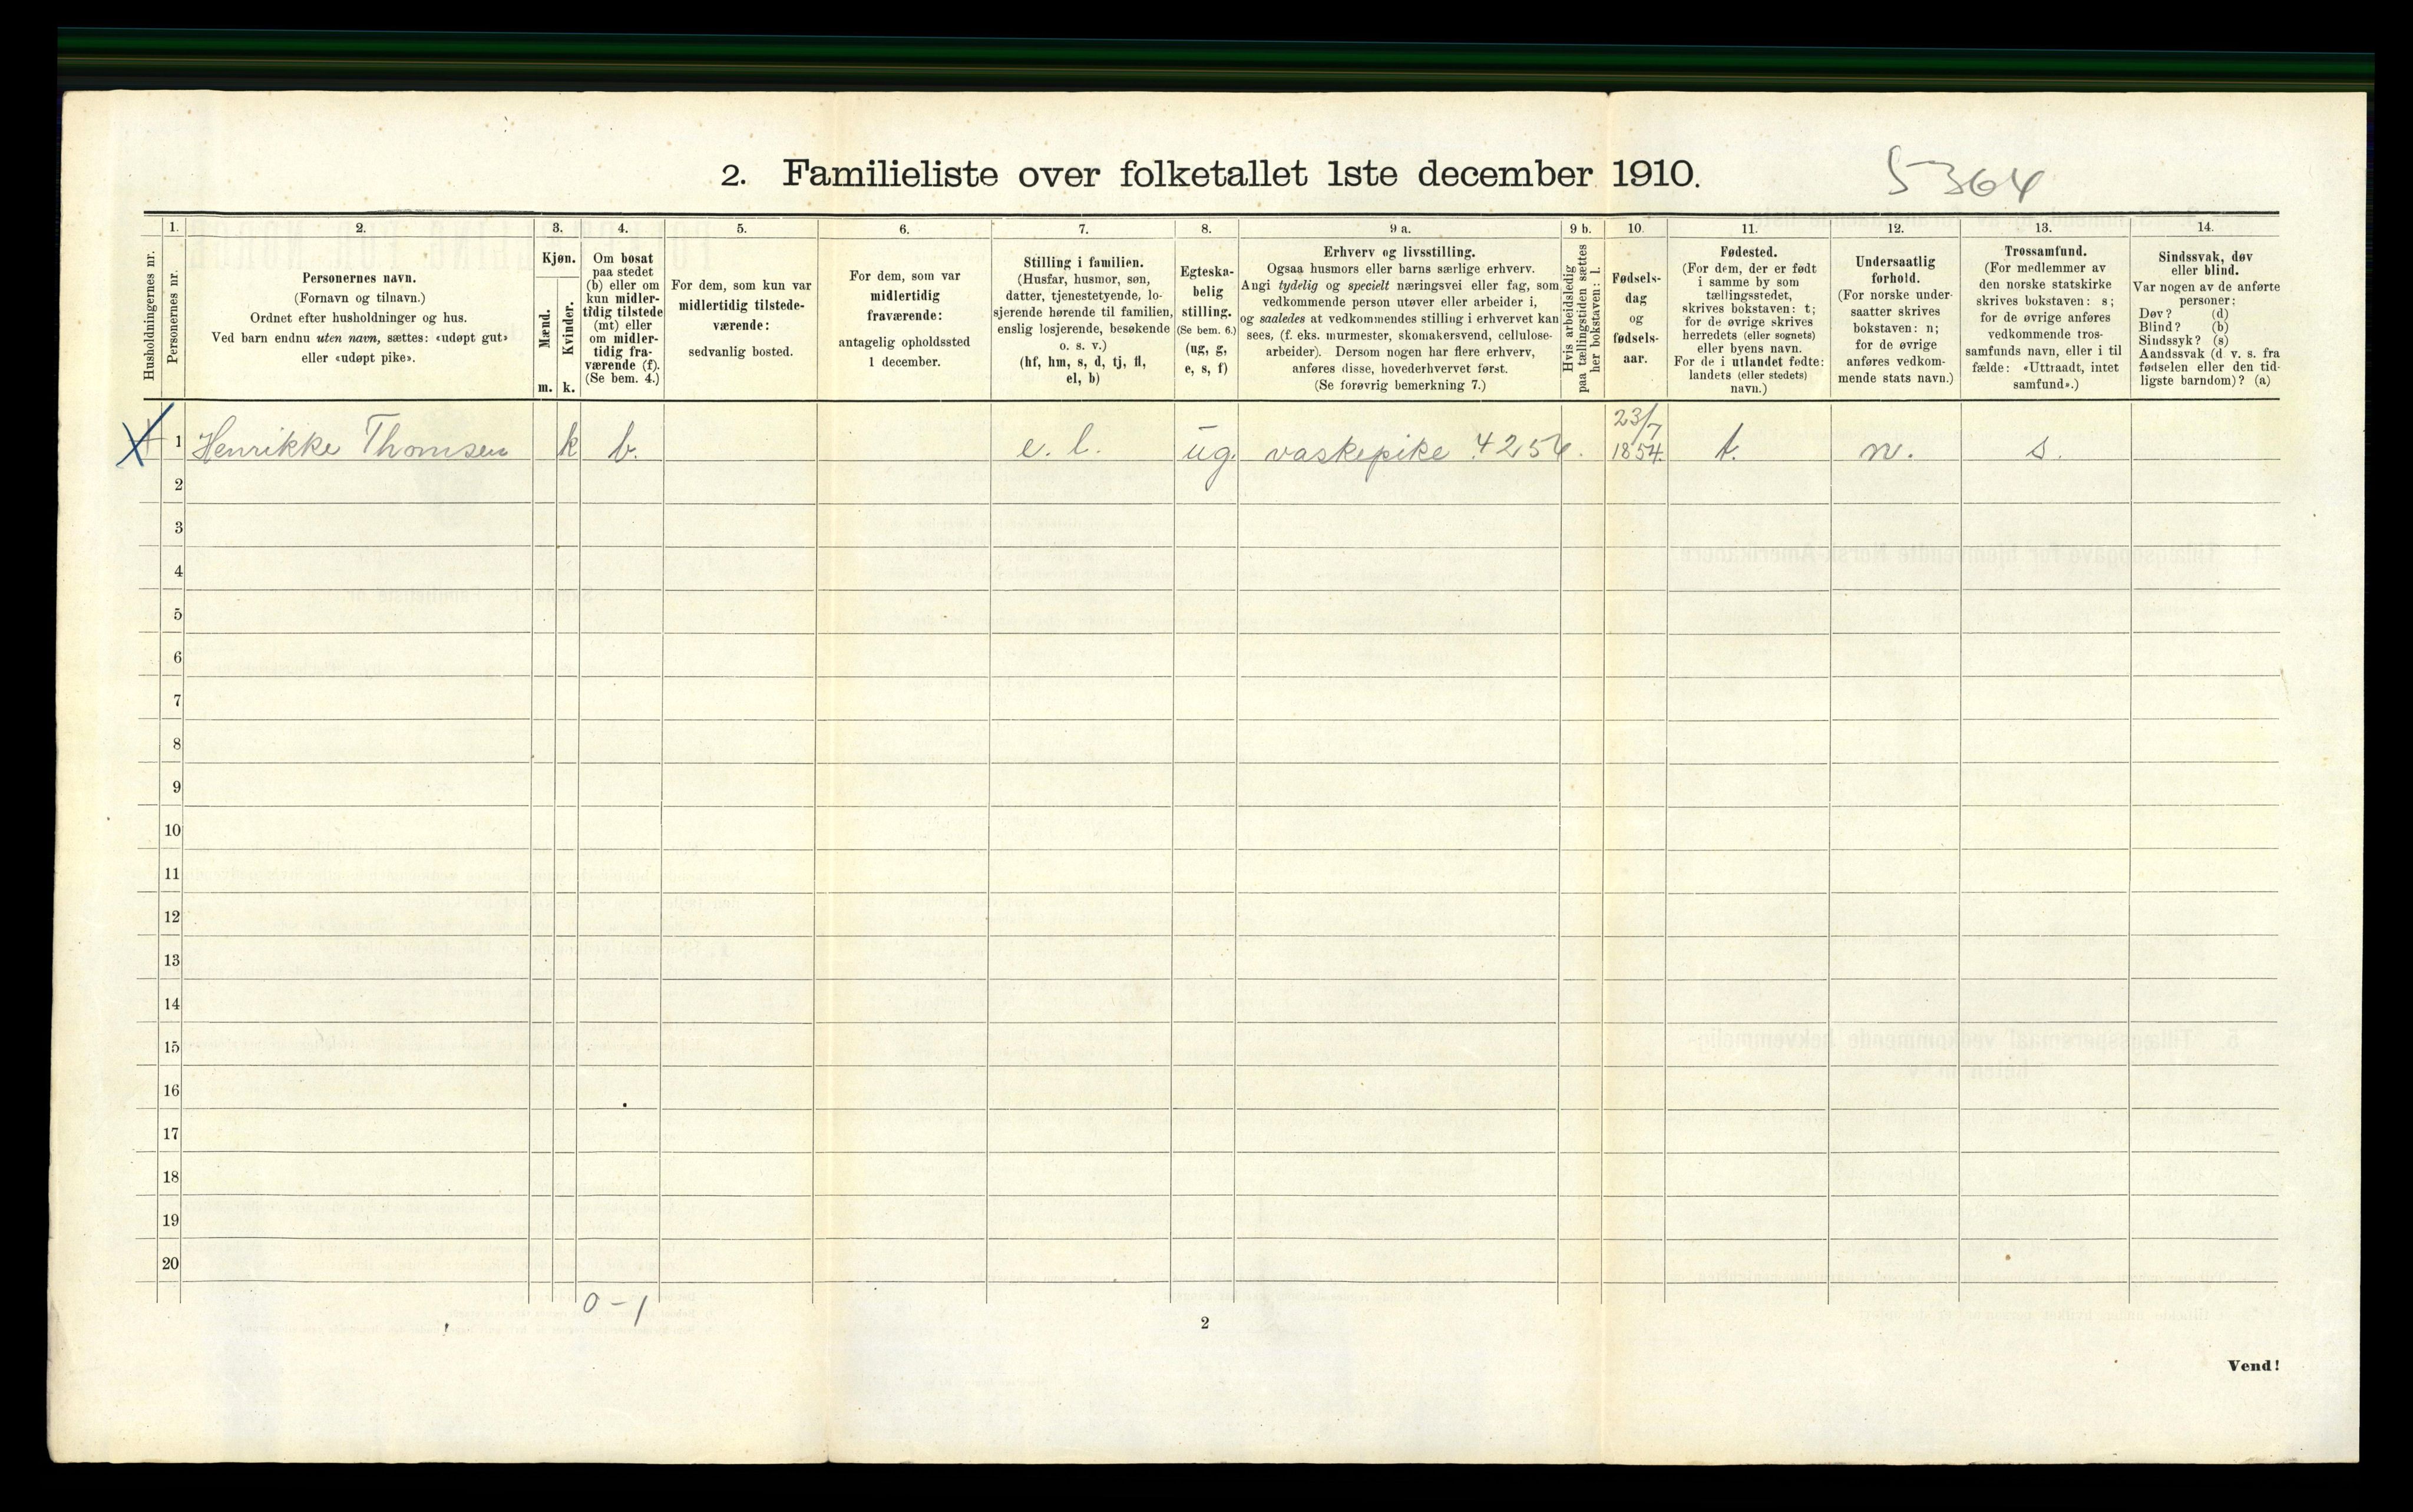 2. Familieliste over folketallet 1ste december 1910.
5364
Husholdningernes nr.
1.
Personernes nr.
2.
Personernes navn.
(Fornavn og tilnavn.)
Ordnet efter husholdninger og hus.
Ved barn endnu uten navn, sættes: «udøpt gut»
eller «udøpt pike».
3.
Kjøn.
Mænd.
Kvinder.
m. k.
4.
Om bosat
paa stedet
(b) eller om
kun midler-
tidig tilstede
(mt) eller
om midler-
tidig fra-
værende (f).
(Se bem. 4.)
5.
For dem, som kun var
midlertidig tilstede-
værende:
sedvanlig bosted.
6.
For dem, som var
midlertidig
fraværende:
antagelig opholdssted
1 december.
7.
Stilling i familien.
(Husfar, husmor, søn,
datter, tjenestetyende, lo-
sjerende hørende til familien,
enslig losjerende, besøkende
o. s. v.)
(hf, hm, s, d, tj, fl,
el, b)
8.
Egteska-
belig
stilling.
(Se bem. 6.)
(ug, g,
e, s, f)
9 a.
Erhverv og livsstilling.
Ogsaa husmors eller barns særlige erhverv.
Angi tydelig og specielt næringsvei eller fag, som
vedkommende person utøver eller arbeider i,
og saaledes at vedkommendes stilling i erhvervet kan
sees, (f. eks. murmester, skomakersvend, cellulose-
arbeider). Dersom nogen har flere erhverv,
anføres disse, hovederhvervet først.
(Se forøvrig bemerkning 7.)
9 b.
Hvis arbeidsledig
paa tællingstiden sættes
her bokstaven: l.
10.
Fødsels-
dag
og
fødsels-
aar.
11.
Fødested.
(For dem, der er født
i samme by som
tællingsstedet,
skrives bokstaven: t;
for de øvrige skrives
herredets (eller sognets)
eller byens navn.
For de i utlandet fødte:
landets (eller stedets)
navn.)
12.
Undersaatlig
forhold.
(For norske under-
saatter skrives
bokstaven: n;
for de øvrige
anføres vedkom-
mende stats navn.)
13.
Trossamfund.
(For medlemmer av
den norske statskirke
skrives bokstaven: s;
for de øvrige anføres
vedkommende tros-
samfunds navn, eller i til
fælde: «Uttraadt, intet
samfund».)
14.
Sindssvak, døv
eller blind.
Var nogen av de anførte
personer:
Døv? (d)
Blind? (b)
Sindssyk? (s)
Aandssvak (d. v. s. fra
fødselen eller den tid-
ligste barndom)? (a)
1 Henrikke Thomsen k b. e. l. ug. vaskepike 4256. 23/7 1854. t. n. s.
2
3
4
5
6
7
8
9
10
11
12
13
14
15
16
17
18
19
20
0-1
2
Vend!